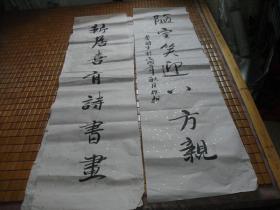 陋室笑迎八方親
新居喜有詩書畫